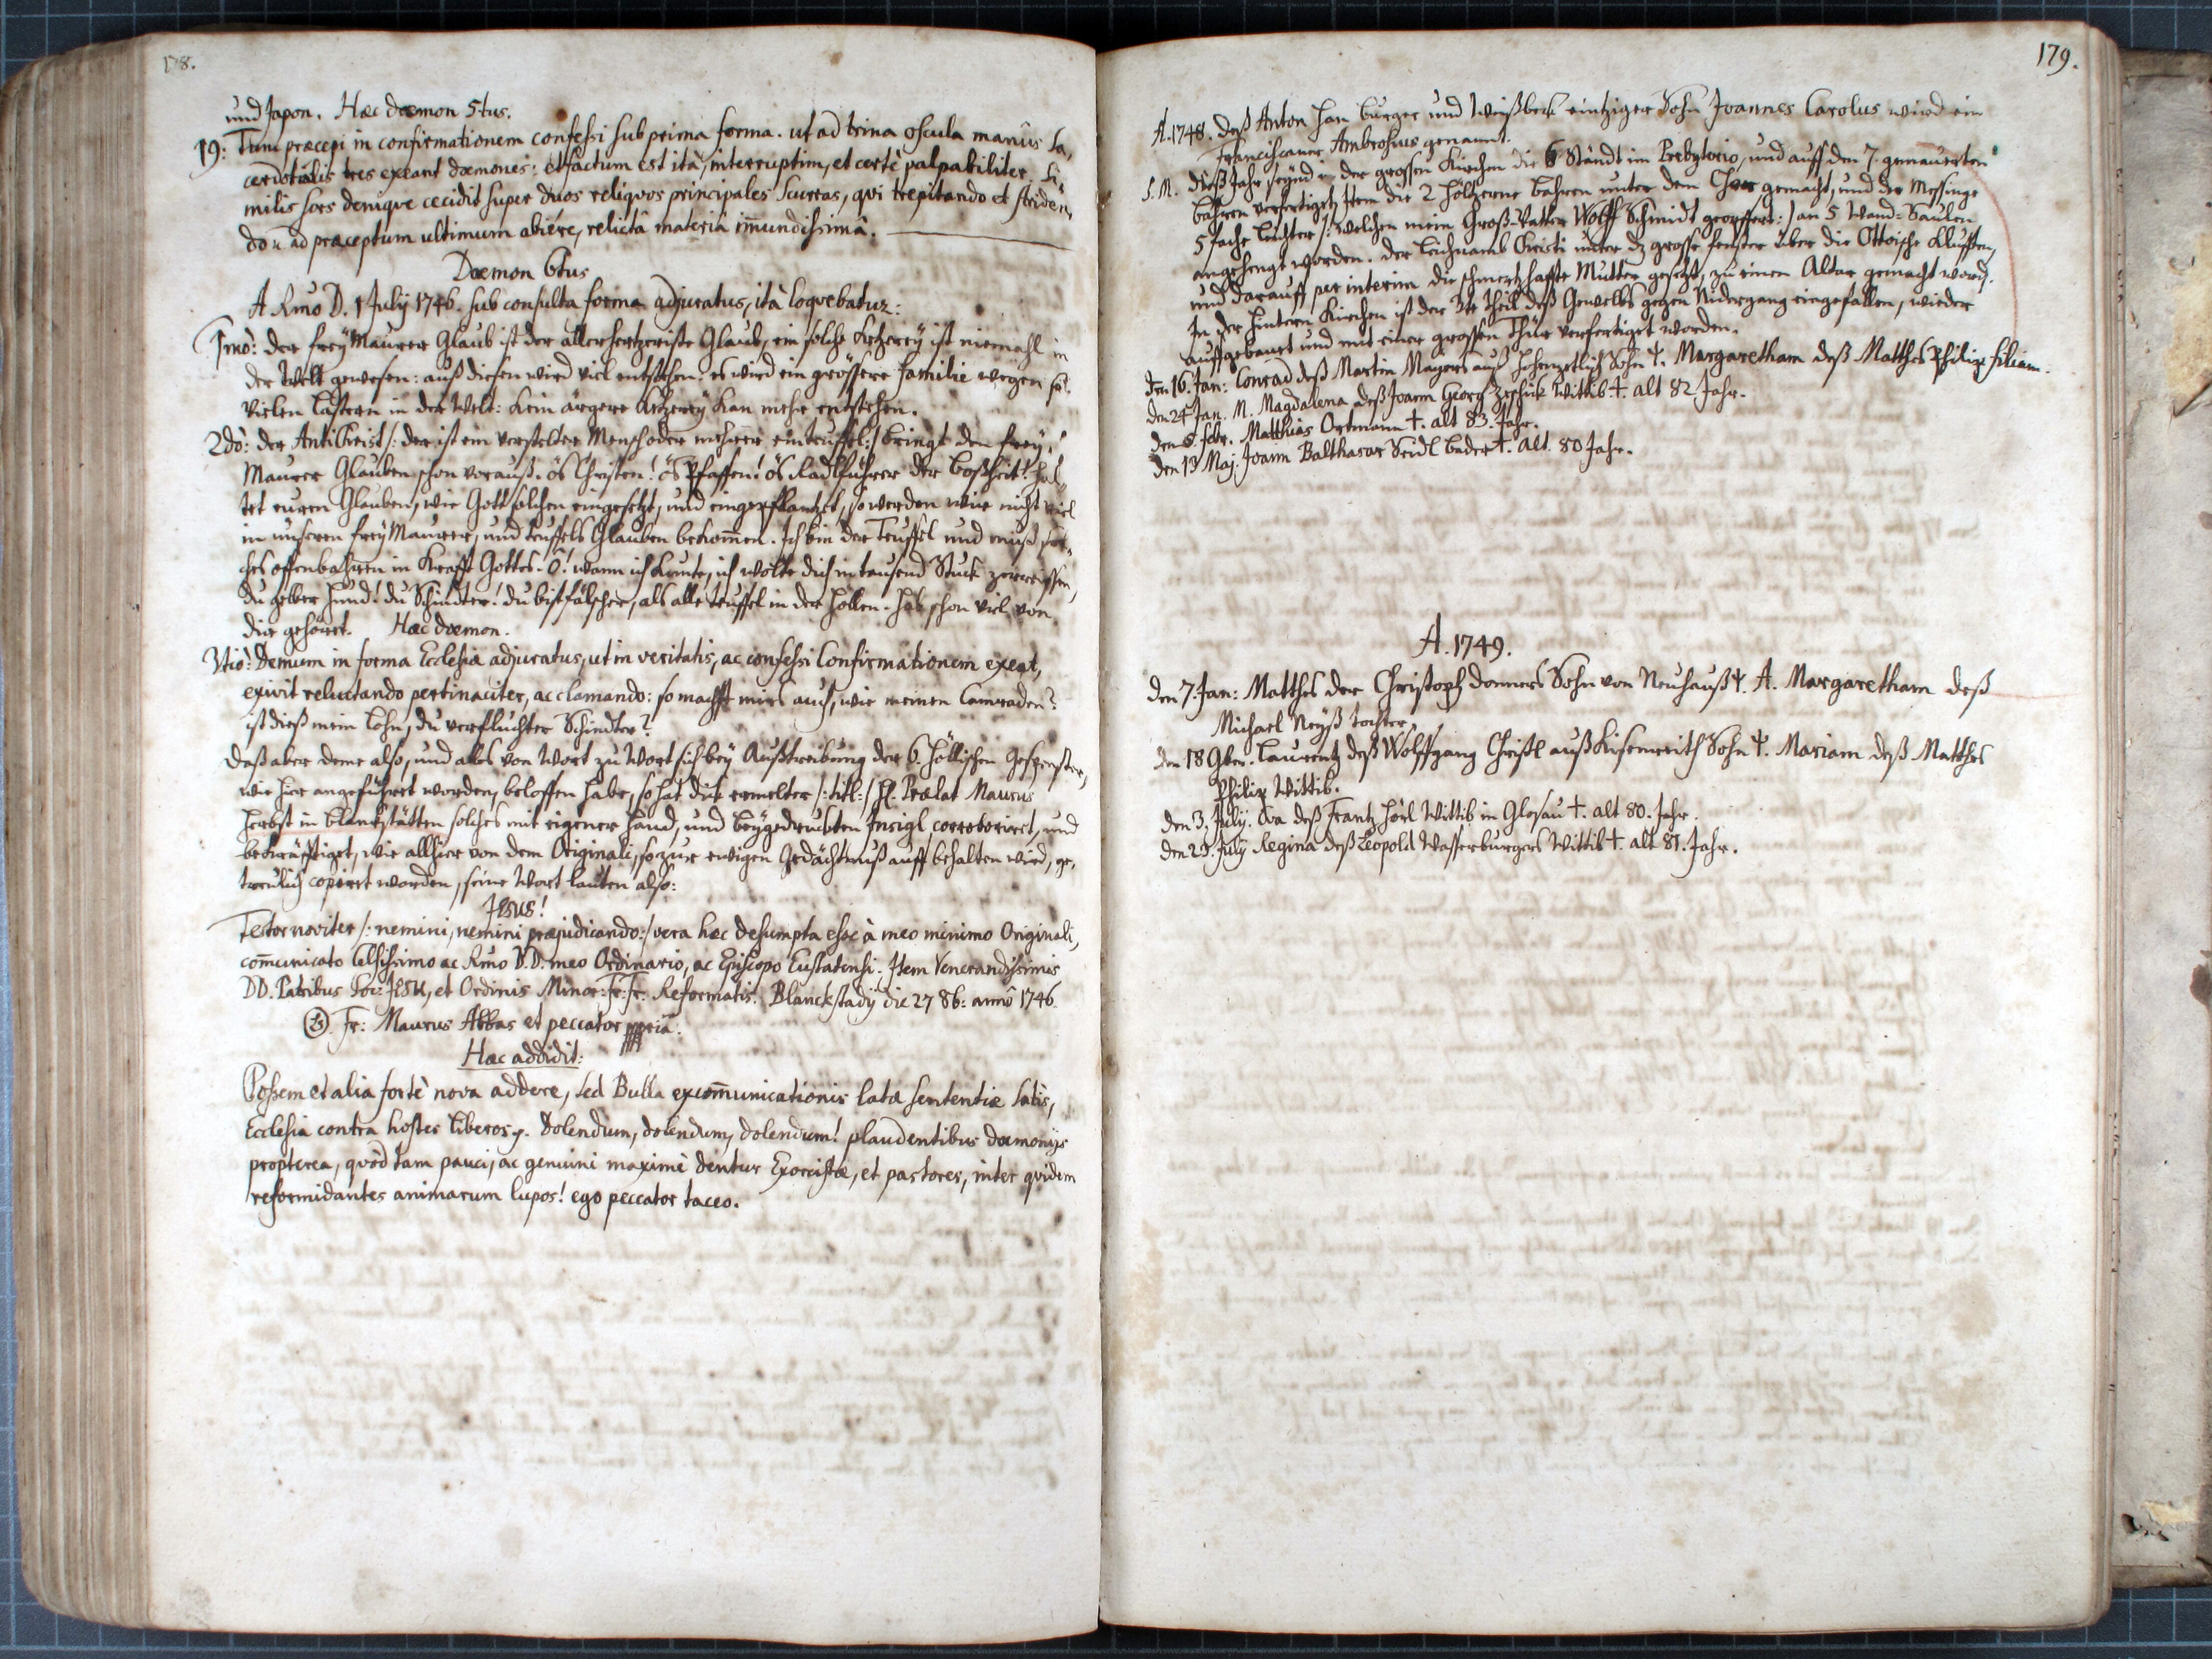 178.
und Japon. Hæc dæmon 5tus.
19: Tum præcepi in confirmationem confessi sub prima forma. ut ad trina oscula manûs sa,
cerdotalis tres exeant dæmones: et factum est ità, interruptim, et certè palpabiliter. Si,
milis sors denique cecidit super duos reliquos principales scurras, qvi trepitando et striden,
do ad præceptum ultimum abiére, relictâ materiâ im̄undissimâ.
Dæmon 6tus
A Rmo D. 1 July 1746. sub consulta forma adjuratus, ità loqvebatur:
1mò: der freÿ Maurer Glaub ist der aller Glaub, ein solche Ketzereÿ ist niemahl in
der Welt gewesen: auß diesen wird viel entstehen: es wird ein grössere familie wegen so
vielen lastern in der Welt: Kein ärgere Ketzereÿ Kan mehr entstehen.
2dò: der AntiChrist /: der ist ein verstelter Mensch oder mehrer ein teuffel:/ bringt den freÿ,
Maurer Glauben schon vorauß. ös Christen! ös Pfaffen! ös Radlführer der boßheit! hal,
tet euren Glauben, wie Gott solchen eingesetzt, und eingepflantzet, so werden wir nicht viel
in unseren freÿ Maurer, und teuffels Glauben bekom̄en. Ich bin der Teuffel und muß sol,
ches offenbahren in Krafft Gottes. O! wann ich Kunte, ich wolte dich in tausend Stuck zerreissen,
du gelber hund! du Schindter! du bist falscher, als alle teuffel in der höllen. hab schon viel von
dir gehöret. Hæc dæmon.
3tiò: Demum in forma Ecclesiæ adjuratus, ut in veritatis, ac confessi Confirmationem exeat,
exivit reluctando pertinaciter, ac clamando: so machst mirs auch, wie meinen Camraden?
ist dieß mein lohn, du verfluchter Schindter?
Daß aber deme also, und alles von Wort zu Wort sich beÿ Außtreibung der 6. höllischen Gespenster,
wie hier angeführet worden, beloffen habe, so hat dick ermelter /: titl:/ H. Prælat Maurus
Herbst in Blankstätten solches mit eigener hand, und beÿgedruckten Insigl corroborirt, und
bekräfftiget, wie allhier von dem Originali, so zur ewigen Gedächtnuß auff behalten wird, ge,
treulich copirt worden, seine Wort lauten also:
Jesus!
Testor noviter /: nemini, nemini præjudicando:/ vera hæc desumpta esse à meo minimo Originali,
com̄unicato Celsissimo ac Rmo D.D. meo Ordinario, ac Episcopo Eustatensi. Item Venerandissimis
DD. Patribus Soc: Jesu, et Ordinis Minor: Fr: Fr: Reformatis. Blanckstadij die 27 8b: annô 1746.
LS. Fr: Maurus Abbas et peccator ppria.
Hæc addidit:
Possem et alia fortè nova addere, sed Bulla excom̄unicationis latæ sententiæ satis,
Ecclesia contra hostes liberos. Dolendum, dolendum, dolendum! plaudentibus dæmonijs
propterea, qvòd tam pauci, ac genuini maximè dentur Exorcistæ, et pastores, inter qvidem
reformidantes animarum lupos! ego peccator taceo.
179.
A. 1748. deß Anton Han burger und Weißbeck eintziger Sohn Joannes Carolus wird ein
Franciscaner Ambrosius genannt.
S. M. dieß Jahr seÿnd in der grossen Kirchen die 6 Ständt im Presbyterio, und auff den 7. gemauerten
bahren verfertiget, Item die 2 höltzerne bahren unter dem Chor gemacht, und der Messinge
5 fache leuchter /: welchen mein Groß-Vatter Wolff Schmidt geopffert:/ an 5 Wand-Säulen
angehengt worden. der leichnamb Christi unter dz grosse fenster über die Ottoische Klufften,
und darauff per interim die schmertzhaffte Mutter gesetzt, zu einem Altar gemacht word.
In der hintern Kirchen ist der 3te theil deß Gewelbs gegen Nidergang eingefallen, wieder
auffgebauet und mit einer grossen thür verfertiget worden.
den 16. Jan: Conrad deß Martin Mayers auß Sohn Ψ. Margaretham deß Matthes Philip filiam.
den 24 Jan. M. Magdalena deß Joann Georg Wittib †. alt 82 Jahr.
den 6. febr. Matthias Ortmann †. alt 83. Jahr.
den 13 Maj. Joann Balthasar Seidl bader †. alt 80 Jahr.
A. 1749.
den 7. Jan: Matthes der Christoph Donners Sohn von Neuhauß Ψ. A. Margaretham deß
Michael Neÿß tochter.
den 18 9ber. Laurentz deß Wolffgang Christl auß Sohn Ψ. Mariam deß Matthes
Philip Wittib.
den 3. July. Eva deß Frantz Hörl Wittib in Glosau †. alt 80. Jahr.
den 29. July Regina deß Leopold Wasserburgers Wittib †. alt 81. Jahr.